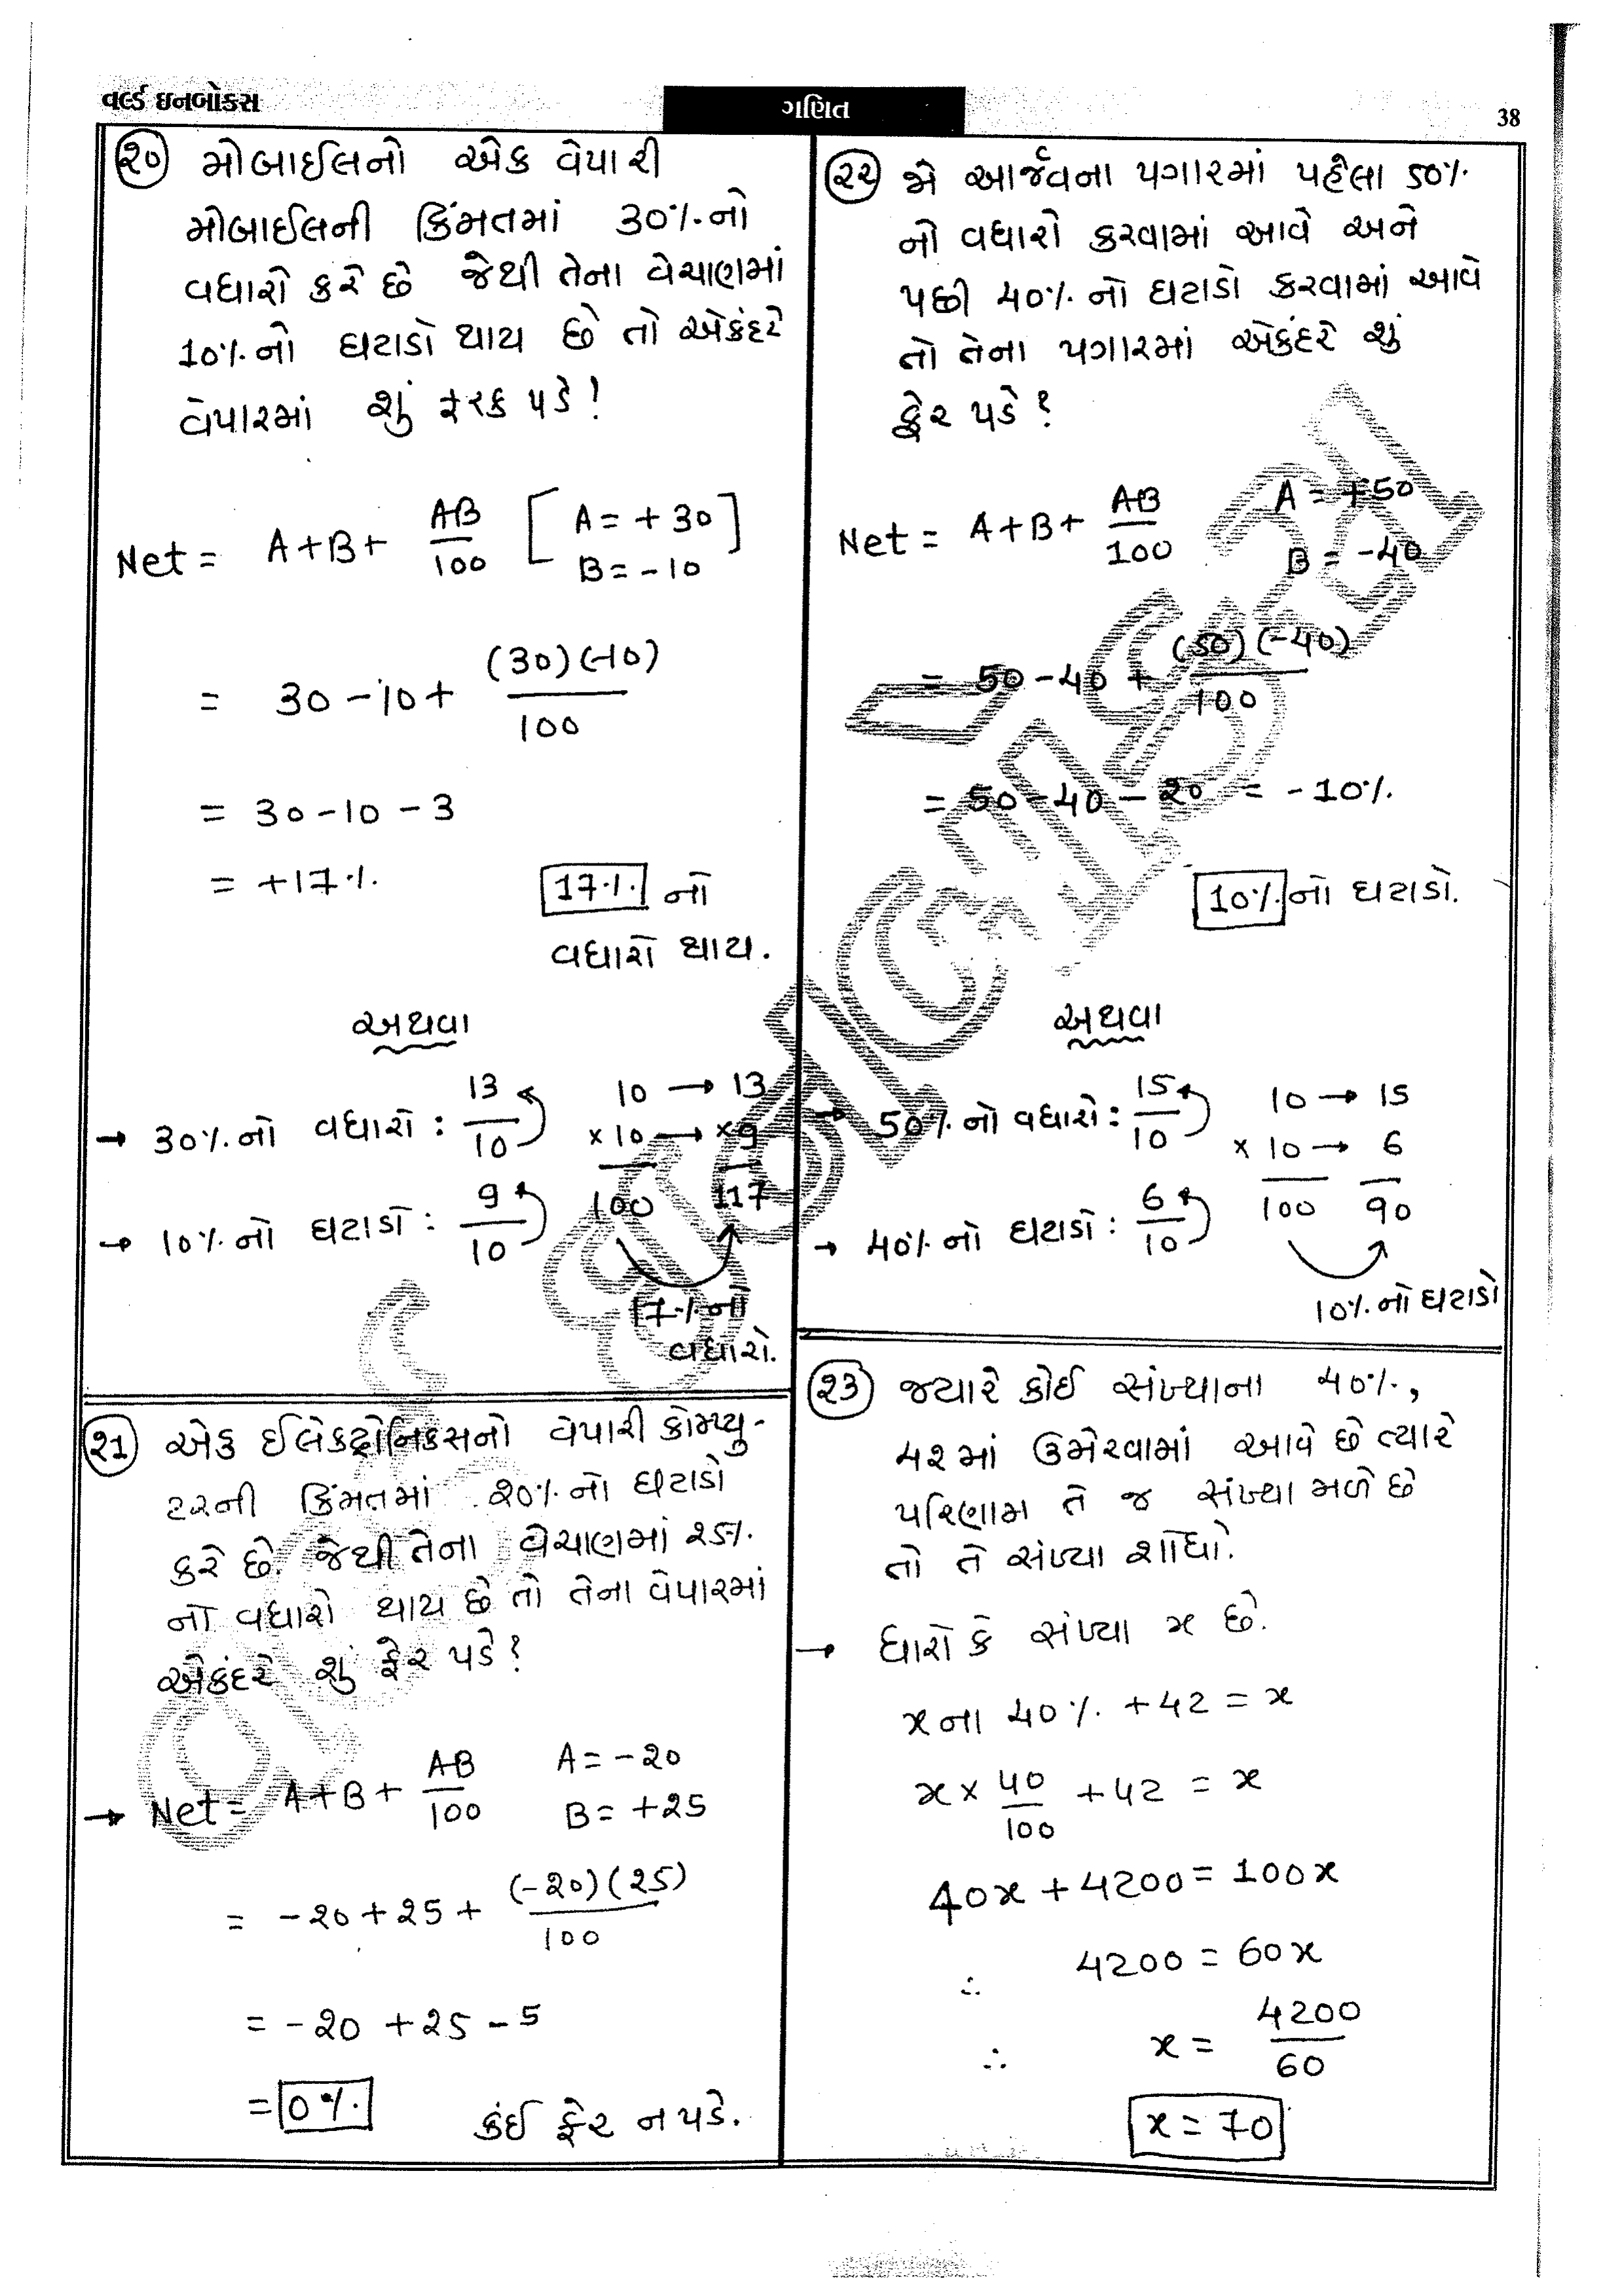 વર્લ્ડ ઇનબોક્સ
ગણિત
38
૨૦ મોબાઈલનો એક વેપારી
મોબાઈલની કિંમતમાં 30%નો
વધારો કરે છે જેથી તેના વેચાણમાં
10%નો ઘટાડો થાય છે તો એકંદરે
વેપારમાં શું ફરક પડે!
Net = A+B+ AB/100 [A = +30
B = -10]
= 30-10+ (30)(-10)/100
= 30-10-3
= +17%.
17%. નો
વધારો થાય.
અથવા
→ 30%નો વધારો : 13/10
→ 10%નો ઘટાડો : 9/10
10 → 13
×10 → ×9
100 117
17%નો
વધારો.
૨1 એક ઈલેક્ટ્રોનિકસનો વેપારી કોમ્પ્યુ-
ટરની કિંમતમાં ૨0%નો ઘટાડો
કરે છે. જેથી તેના વેચાણમાં ૨5%
નો વધારો થાય છે તો તેના વેપારમાં
એકંદરે શું ફેર પડે?
→ Net = A+B+ AB/100 A = -૨0
B = +૨5
= -૨0+૨5+ (-૨0)(૨5)/100
= -૨0+૨5-5
= 0%. કંઈ ફેર ન પડે.
૨૨ જો આર્જવના પગારમાં પહેલા 50%
નો વધારો કરવામાં આવે અને
પછી 40%નો ઘટાડો કરવામાં આવે
તો તેના પગારમાં એકંદરે શું
ફેર પડે?
Net = A+B+ AB/100 A = +50
B = -40
= 50-40+ (50)(-40)/100
= 50-40-૨0 = -10%.
10% નો ઘટાડો.
અથવા
→ 50%નો વધારો : 15/10
→ 40%નો ઘટાડો : 6/10
10 → 15
× 10 → 6
100 90
10%નો ઘટાડો
૨3 જ્યારે કોઈ સંખ્યાના 40%,
4૨માં ઉમેરવામાં આવે છે ત્યારે
પરિણામ તે જ સંખ્યા મળે છે
તો તે સંખ્યા શોધો.
→ ધારો કે સંખ્યા x છે.
xના 40% + 42 = x
x × 40/100 + 42 = x
40x + 4200 = 100x
∴ 4200 = 60x
∴ x = 4200/60
x = 70